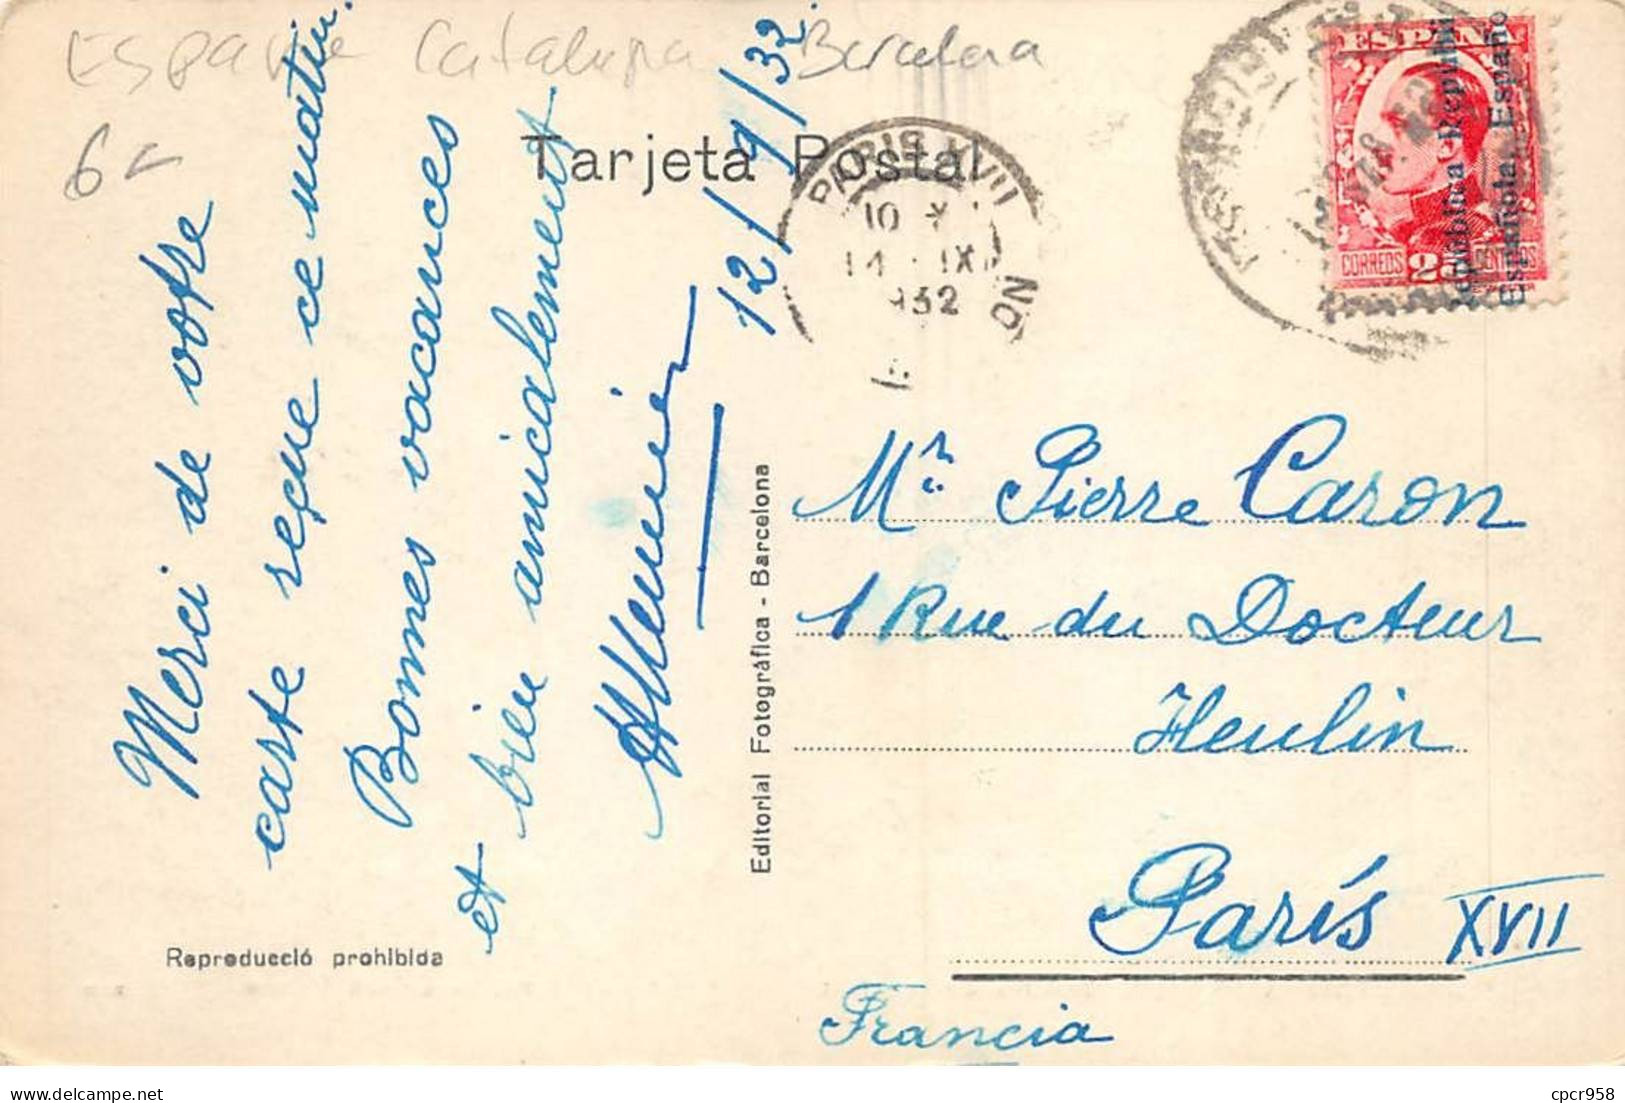 España Catalunya Barcelona
6-
Tarjeta Postal
12/9/32
Merci de votre
carte reçue ce matin.
Bonnes vacances
et bien amicalement
PARIS XVII
10 *
14 IX
1932
ESPAÑA
República Española
CORREOS 25 CENTIMOS
Mr. Pierre Caron
1 Rue du Docteur
Heulin
París XVII
Francia
Editorial Fotográfica - Barcelona
Reproducció prohibida
cpcr958